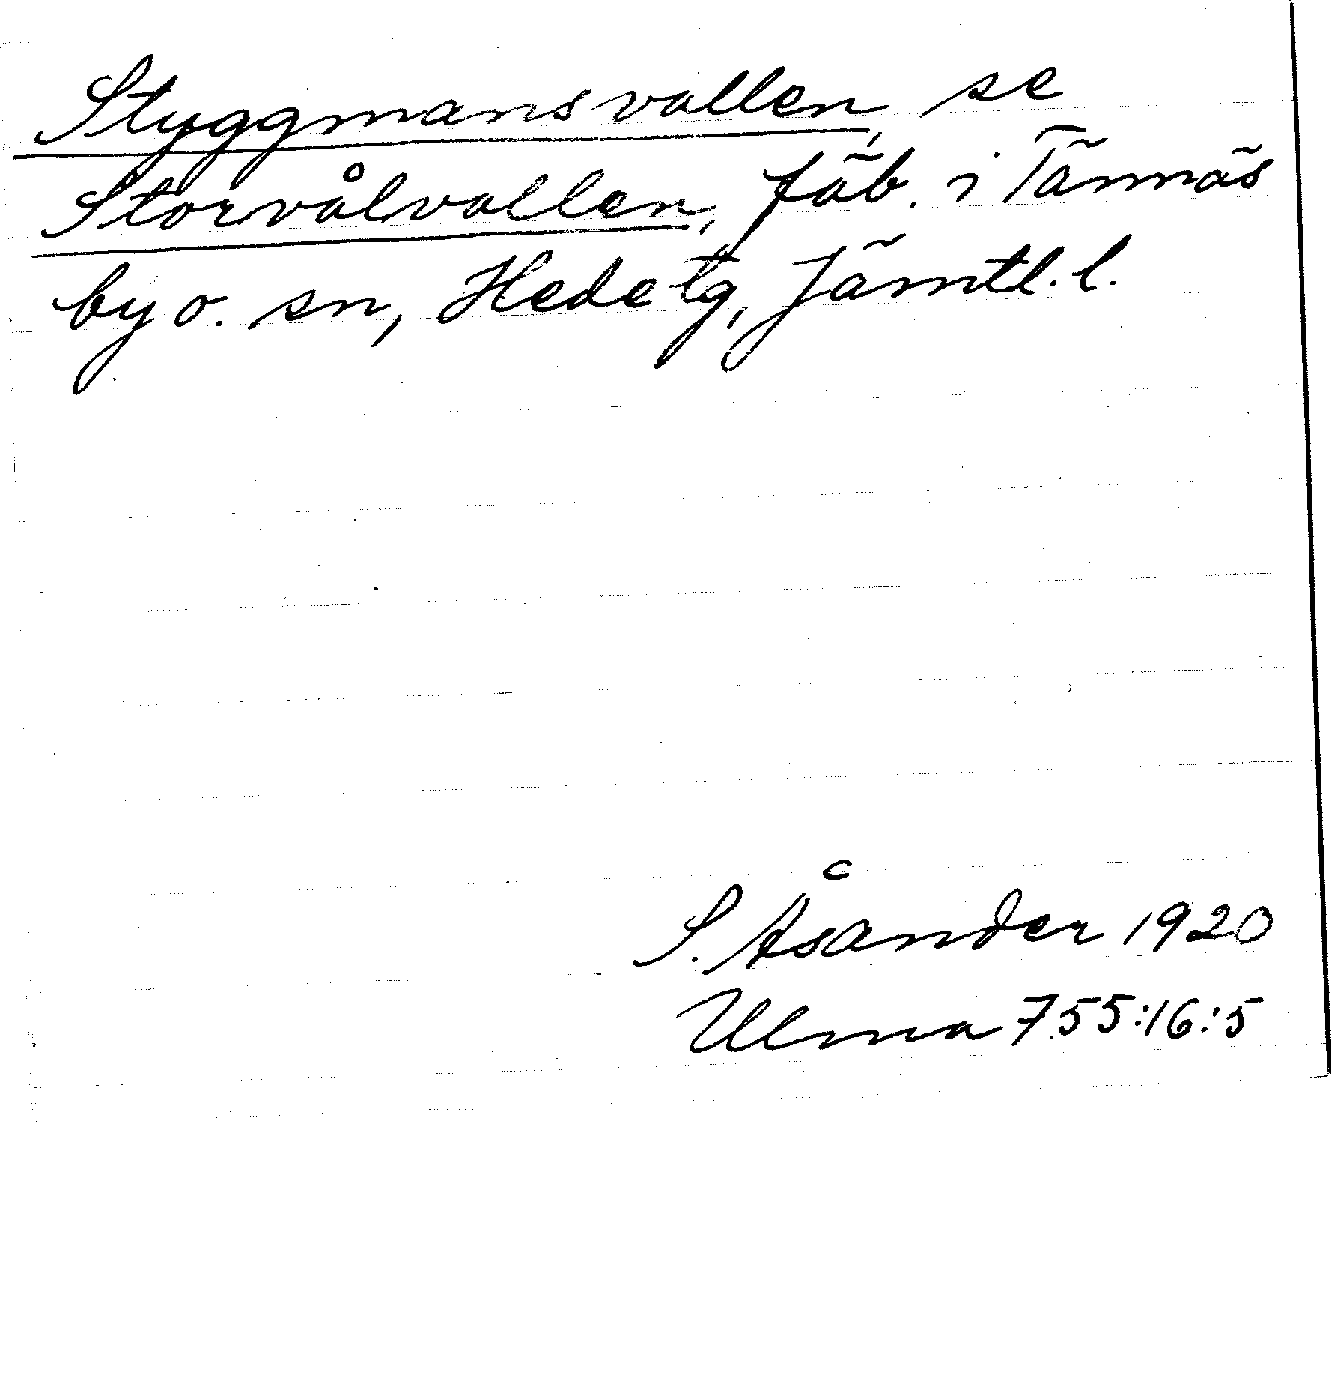 Styggmansvallen, se
Storvålvallen, fäb. i Tännäs
by o. sn, Hede tg, Jämtl. l.
S. Åsander 1920
Ulma 755:16:5